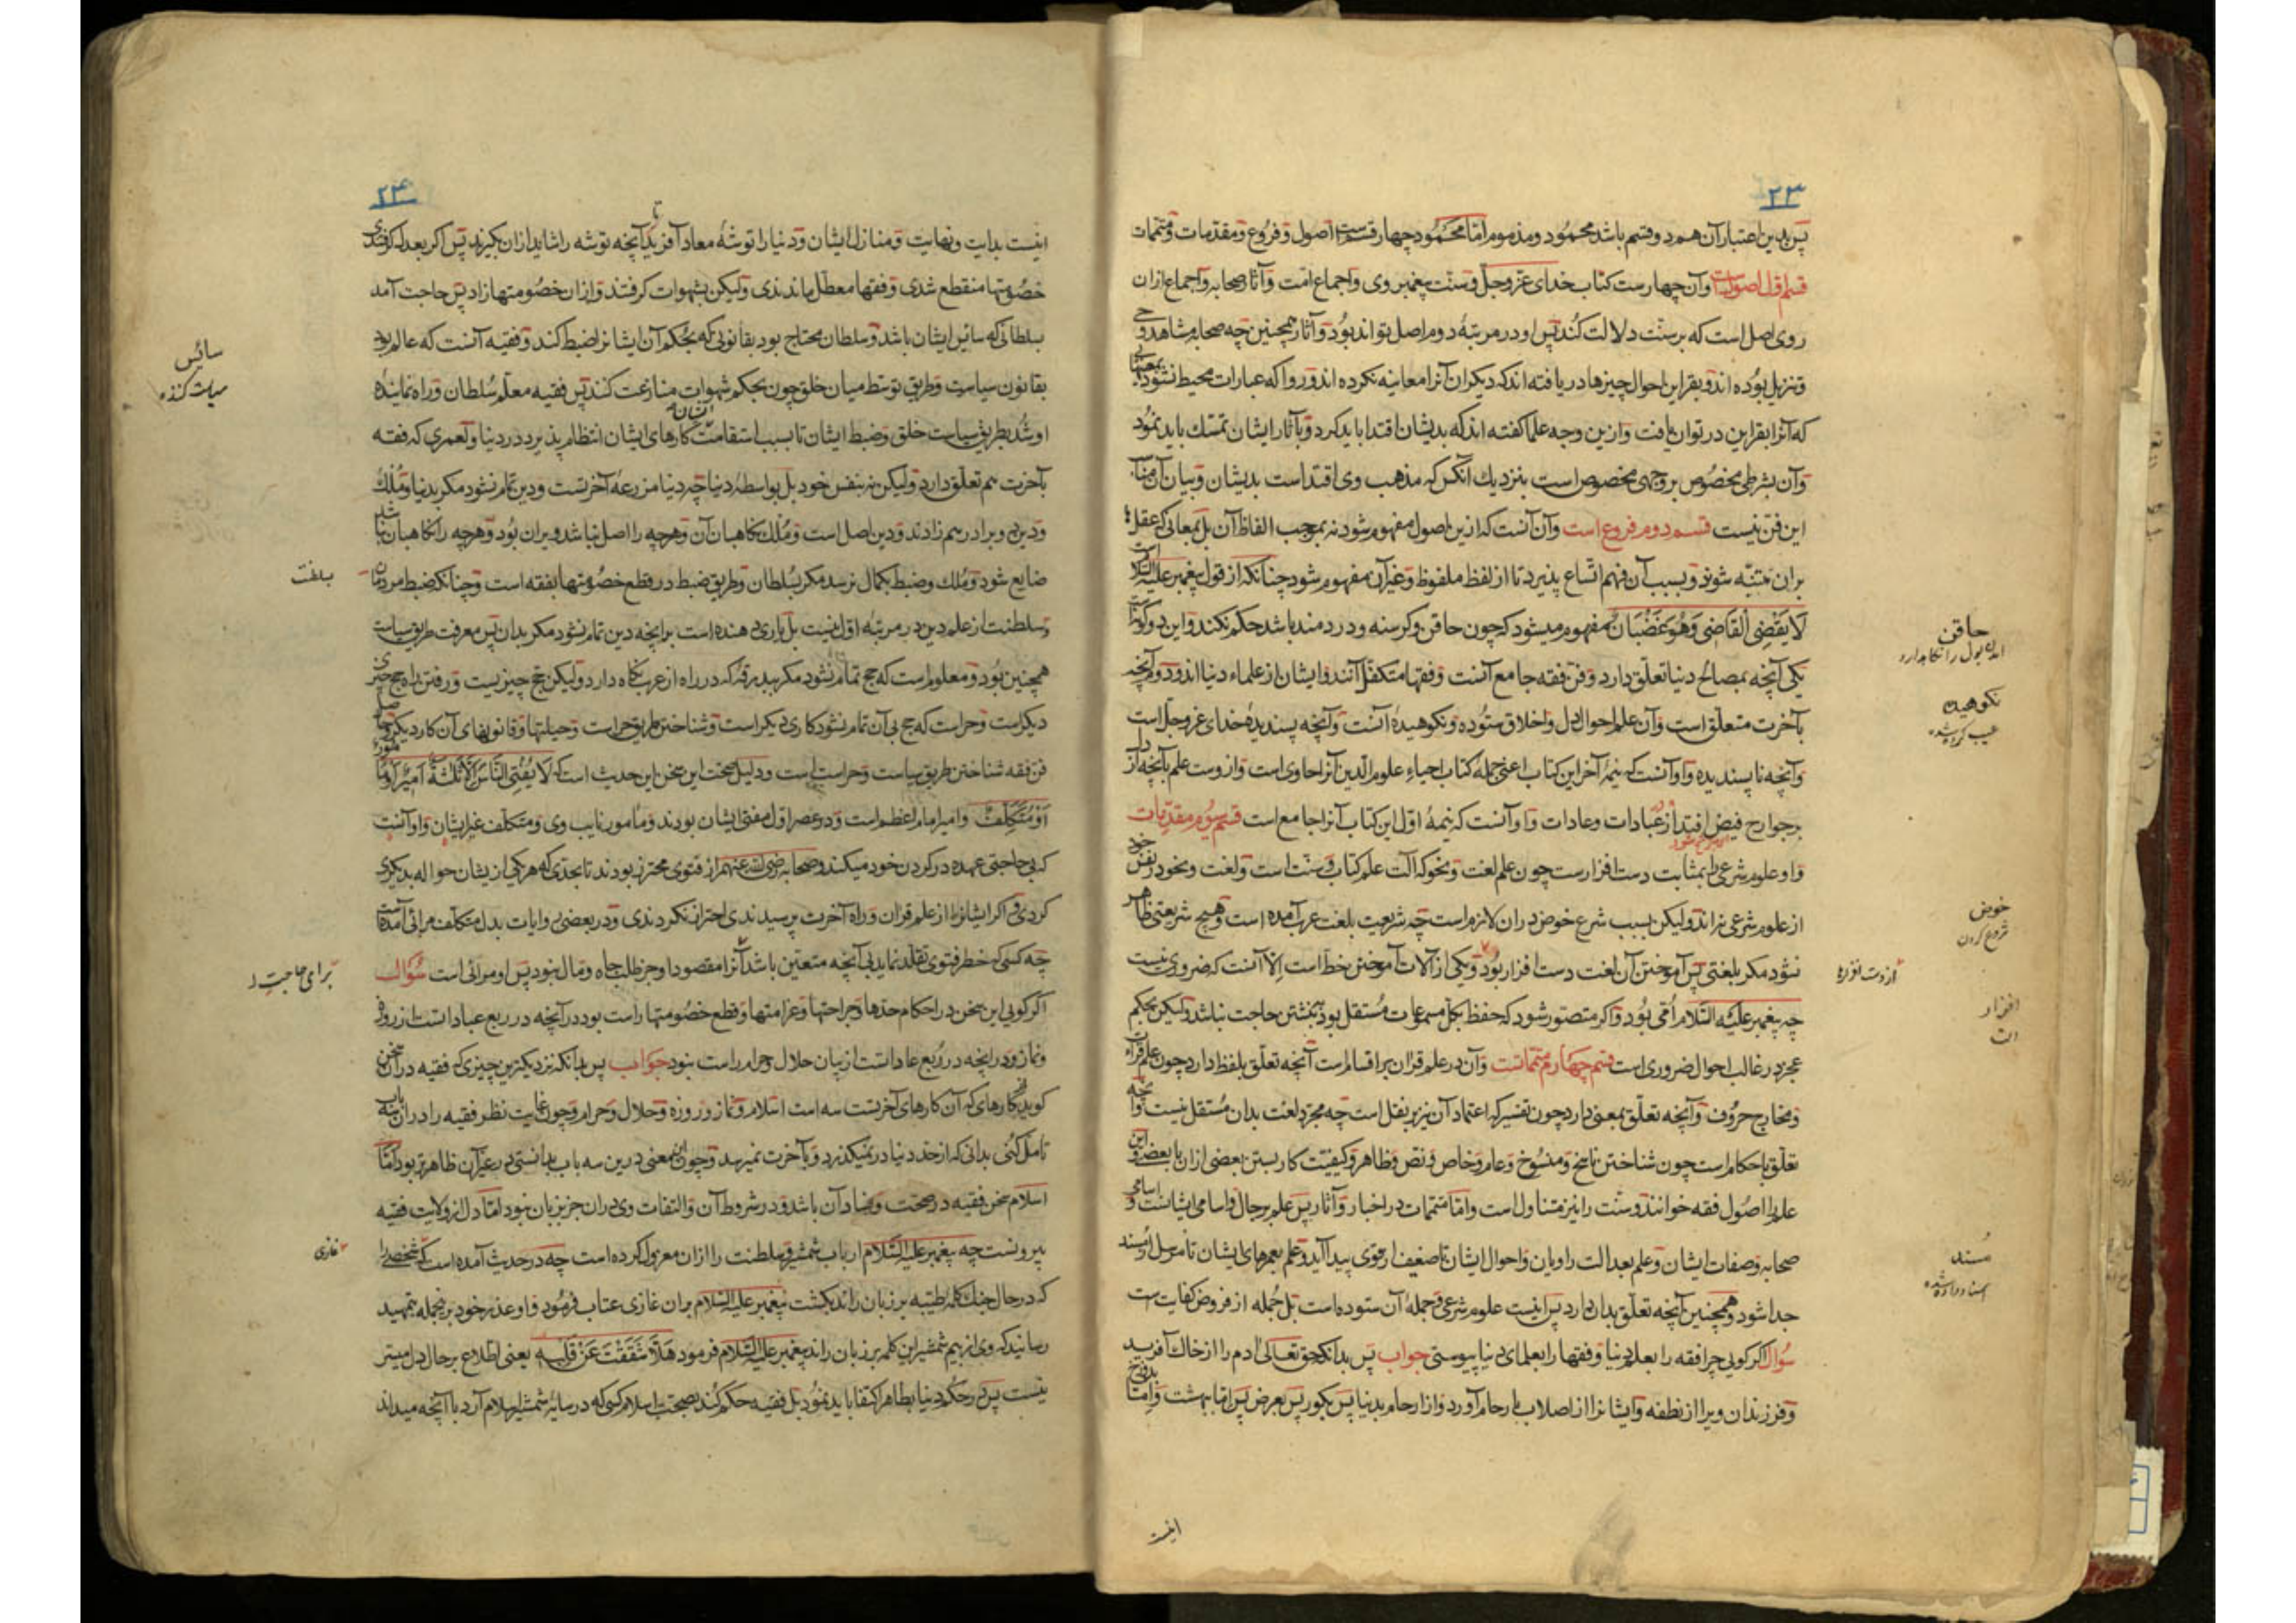 ۲۳
پس بدین اعتبار آن هم دو قسم باشد محمود و مذموم اما محمود چهار قسمست اصول و فروع و مقدمات و متممات
قسم اول اصولست و آن چهارست کتاب خدای عز و جل و سنت پیغمبر وی و اجماع امت و آثار صحابه و اجماع از ان
روی اصل است که بر سنت دلالت کند پس او در مرتبهٔ دوم اصل تواند بود و آثار همچنین چه صحابه مشاهد وحی
و تنزیل بوده اند و بقراین احوال چیزها دریافته اند که دیگران آنرا معاینه نکرده اند و روا که عبارات محیط نشود بمعنیی
که آنرا بقراین در توان یافت و ازین وجه علما گفته اند که بدیشان اقتدا باید کرد و بآثار ایشان تمسك باید نمود
و آن بشرطی مخصوص بر وجهی مخصوص است بنزدیك آنکس که مذهب وی اقتداست بدیشان و بیان آن مناسب
این فن نیست قسم دوم فروع است و آن آنست که ازین اصول مفهوم شود نه بموجب الفاظ آن بل بمعانی که عقل
بران متنبه شود و بسبب آن فهم اتساع پذیرد تا از لفظ ملفوظ و غیر آن مفهوم شود چنانکه از قول پیغمبر علیه السلام
لا یقضی القاضی وهو غضبان مفهوم میشود که چون حاقن و گرسنه و دردمند باشد حکم نکند و این دو گونه است
یکی آنچه بمصالح دنیا تعلق دارد و فن فقه جامع آنست و فقها متکفل آنند و ایشان از علماء دنیا اند و دوم آنچه
بآخرت متعلق است و آن علم احوال دل و اخلاق ستوده و نکوهیدهٔ آنست و آنچه پسندیدهٔ خدای عز و جل است
و آنچه ناپسندیده و او آنست که نیمهٔ آخر این کتاب اعنی جملهٔ کتاب احیاء علوم الدین آنرا حاوی است و از وست علم بآنچه از دل
بر جوارح فیض افتد از عبادات و عادات و او آنست که نیمهٔ اول این کتاب آنرا جامع است قسم سوم مقدمات
و او علوم شرعی را بمثابت دست افزارست چون علم لغت و نحو که آلت علم کتاب و سنت است و لغت و نحو در نفس خود
از علوم شرعی نه اند ولیکن بسبب شرع خوض دران لازم است چه شریعت بلغت عرب آمده است و هیچ شریعتی ظاهر
نشود مگر بلغتی پس آموختن آن لغت دست افزار بود و یکی از آلات آموختن خط است الا آنست که ضروری نیست
چه پیغمبر علیه السلام امی بود و اگر متصور شود که حفظ بکل مسموعات مستقل بود بنبشتن حاجت نباشد ولیکن بحکم
عجز در غالب احوال ضروری است قسم چهارم متمماتست و آن در علم قرآن بر اقسام است آنچه تعلق بلفظ دارد چون علم قرآت
و مخارج حروف و آنچه تعلق بمعنی دارد چون تفسیر که اعتماد آن نیز بر نقل است چه مجرد لغت بدان مستقل نیست و آنچه
تعلق باحکام است چون شناختن ناسخ و منسوخ و عام و خاص و نص و ظاهر و کیفیت کار بستن بعضی ازان با بعضی و این
علم را اصول فقه خوانند و سنت را نیز متناول است و اما متممات در اخبار و آثار پس علم برجال و اسامی ایشانست و اسامی
صحابه و صفات ایشان و علم بعدالت راویان و احوال ایشان تا ضعیف از قوی پیدا آید و علم بعمرهای ایشان تا مرسل از مسند
جدا شود و همچنین آنچه تعلق بدان دارد پس اینست علوم شرعی و جملهٔ آن ستوده است بل جمله از فروض کفایت است
سؤال اگر گویی چرا فقه را بعلم دنیا و فقها را بعلمای دنیا پیوستی جواب پس بدانکه حق تعالی آدم را از خاك آفرید
و فرزندان ویرا از نطفه و ایشانرا از اصلاب بارحام آورد و از ارحام بدنیا پس بگور پس بعرض پس اما ببهشت و اما بدوزخ
حاقن
آنکه بول را نگاه دارد
نکوهیده
عیب کرده شده
خوض
شروع کردن
از دست افزاره
افزار
آلت
مسند
اسناد داده شده
اینست
۲۴
اینست بدایت و نهایت و منازل ایشان و دنیا را توشهٔ معاد آفرید تا آنچه توشه را شاید ازان بگیرند پس اگر بعدل گرفتندی
خصومتها منقطع شدی و فقها معطل ماندندی ولیکن بشهوات گرفتند و ازان خصومتها زاد پس حاجت آمد
بسلطانی که سائس ایشان باشد و سلطان محتاج بود بقانونی که بحکم آن ایشانرا ضبط کند و فقیه آنست که عالم بود
بقانون سیاست و طریق توسط میان خلق چون بحکم شهوات منازعت کنند پس فقیه معلم سلطان و راه نمایندهٔ
او شد بطریق سیاست خلق و ضبط ایشان تا بسبب استقامت ایشان کارهای ایشان انتظام پذیرد در دنیا و لعمری که فقه
بآخرت هم تعلق دارد ولیکن نه بنفس خود بل بواسطهٔ دنیا چه دنیا مزرعهٔ آخرتست و دین تمام نشود مگر بدنیا و ملك
و دین دو برادر هم زادند و دین اصل است و ملك نگاهبان آن و هرچه را اصل نباشد ویران بود و هرچه را نگاهبان نباشد
ضایع شود و ملك و ضبط بکمال نرسد مگر بسلطان و طریق ضبط در قطع خصومتها بفقه است و چنانکه ضبط مردمان
بسلطنت از علم دین در مرتبهٔ اول نیست بل یاری دهنده است بر آنچه دین تمام نشود مگر بدان پس معرفت طریق سیاست
همچنین بود و معلوم است که حج تمام نشود مگر ببدرقهٔ که در راه از عرب نگاه دارد ولیکن حج چیزیست و رفتن براه حج چیزی
دیگراست و حراست که حج بی آن تمام نشود کاری دیگر است و شناختن طریق حراست و حیلتها و قانونهای آن کار دیگر و حاصل
فن فقه شناختن طریق سیاست و حراست است و دلیل صحت این سخن این حدیث است که لا یفتی الناس الا ثلثة امیر او مامور
او متکلف و امیر امام اعظم است و در عصر اول مفتی ایشان بودند و مأمور نایب وی و متکلف غیر ایشان و او آنست
که بی حاجتی عهده در گردن خود میکند و صحابه رضی الله عنهم از فتوی محترز بودند تا بحدی که هر یکی ازیشان حواله بدیگری
کردی و اگر ایشانرا از علم قرآن و راه آخرت پرسیدندی احتراز نکردندی و در بعضی روایات بدل متکلف مرائی آمده است
چه کسی که خطر فتوی تقلد نماید بی آنچه متعین باشد آنرا مقصود او جز طلب جاه و مال نبود پس او مرائی است سؤال
اگر گویی این سخن در احکام حدها و جراحتها و غرامتها و قطع خصومتها راست بود در آنچه در ربع عبادات است از روزه
و نماز و در آنچه در ربع عاداتست از بیان حلال و حرام راست نبود جواب پس بدانکه نزدیکترین چیزی که فقیه در آن سخن
گوید از کارهای که آن کارهای آخرتست سه است اسلام و نماز و روزه و حلال و حرام و چون غایت نظر فقیه را دران سه باب
تأمل کنی بدانی که از حد دنیا در نمیگذرد و بآخرت نمیرسد و چون این معنی درین سه باب بدانستی در غیر آن ظاهرتر بود اما
اسلام سخن فقیه در صحت و فساد آن باشد و در شروط آن و التفات وی دران جز بزبان نبود اما دل از ولایت فقیه
بیرونست چه پیغمبر علیه السلام ارباب شمشیر و سلطنت را ازان معزول کرده است چه در حدیث آمده است که شخصی را
که در حال جنك کلمهٔ طیبه بر زبان راند بکشت پیغمبر علیه السلام بران غازی عتاب فرمود و او عذر خود بر آنجمله تمهید
رسانید که وی از بیم شمشیر این کلمه بر زبان راند پیغمبر علیه السلام فرمود هلا شققت عن قلبه یعنی اطلاع بر حال دل میسر
نیست پس در حکم دنیا بظاهر اکتفا باید نمود بل فقیه حکم کند بصحت اسلام کسی که در سایهٔ شمشیر اسلام آرد با آنچه میداند
سائس
سیاست کننده
بسلطنت
برای حاجت
غازی